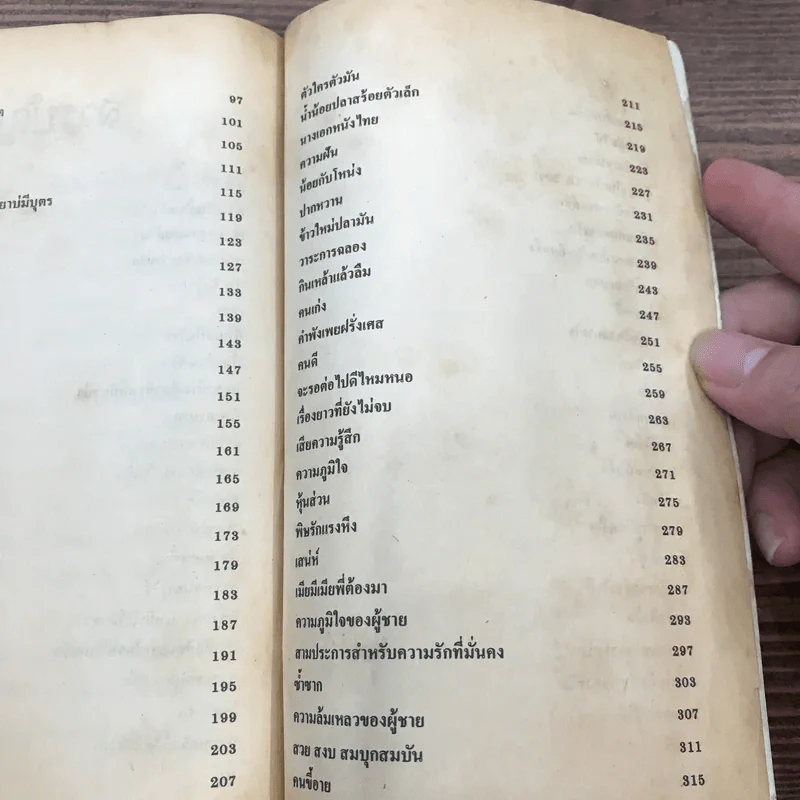 97
101
105
111
ยาบ่มีบุตร 115
119
123
127
133
139
143
147
151
155
161
165
169
173
179
183
187
191
195
199
203
207
ตัวใครตัวมัน 211
น้ำน้อยปลาสร้อยตัวเล็ก 215
นางเอกหนังไทย 219
ความฝัน 223
น้อยกับโหน่ง 227
ปากหวาน 231
ข้าวใหม่ปลามัน 235
วาระการฉลอง 239
กินเหล้าแล้วลืม 243
คนเก่ง 247
คำพังเพยฝรั่งเศส 251
คนดี 255
จะรอต่อไปดีไหมหนอ 259
เรื่องยาวที่ยังไม่จบ 263
เสียความรู้สึก 267
ความภูมิใจ 271
หุ้นส่วน 275
พิษรักแรงหึง 279
เสน่ห์ 283
เมียมีเมียพี่ต้องมา 287
ความภูมิใจของผู้ชาย 293
สามประการสำหรับความรักที่มั่นคง 297
ซ้ำซาก 303
ความล้มเหลวของผู้ชาย 307
สวย สงบ สมบุกสมบัน 311
คนขี้อาย 315